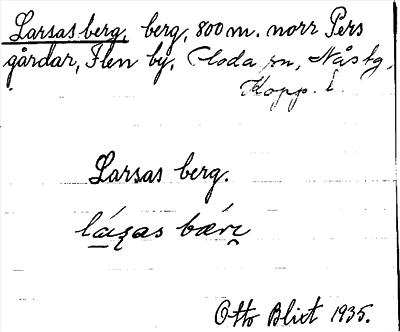 Larsas berg, berg, 800 m. norr Pers
gårdar, Flen by, Floda sn, Nås tg,
Kopp. l.
Larsas berg.
Otto Blixt 1935.